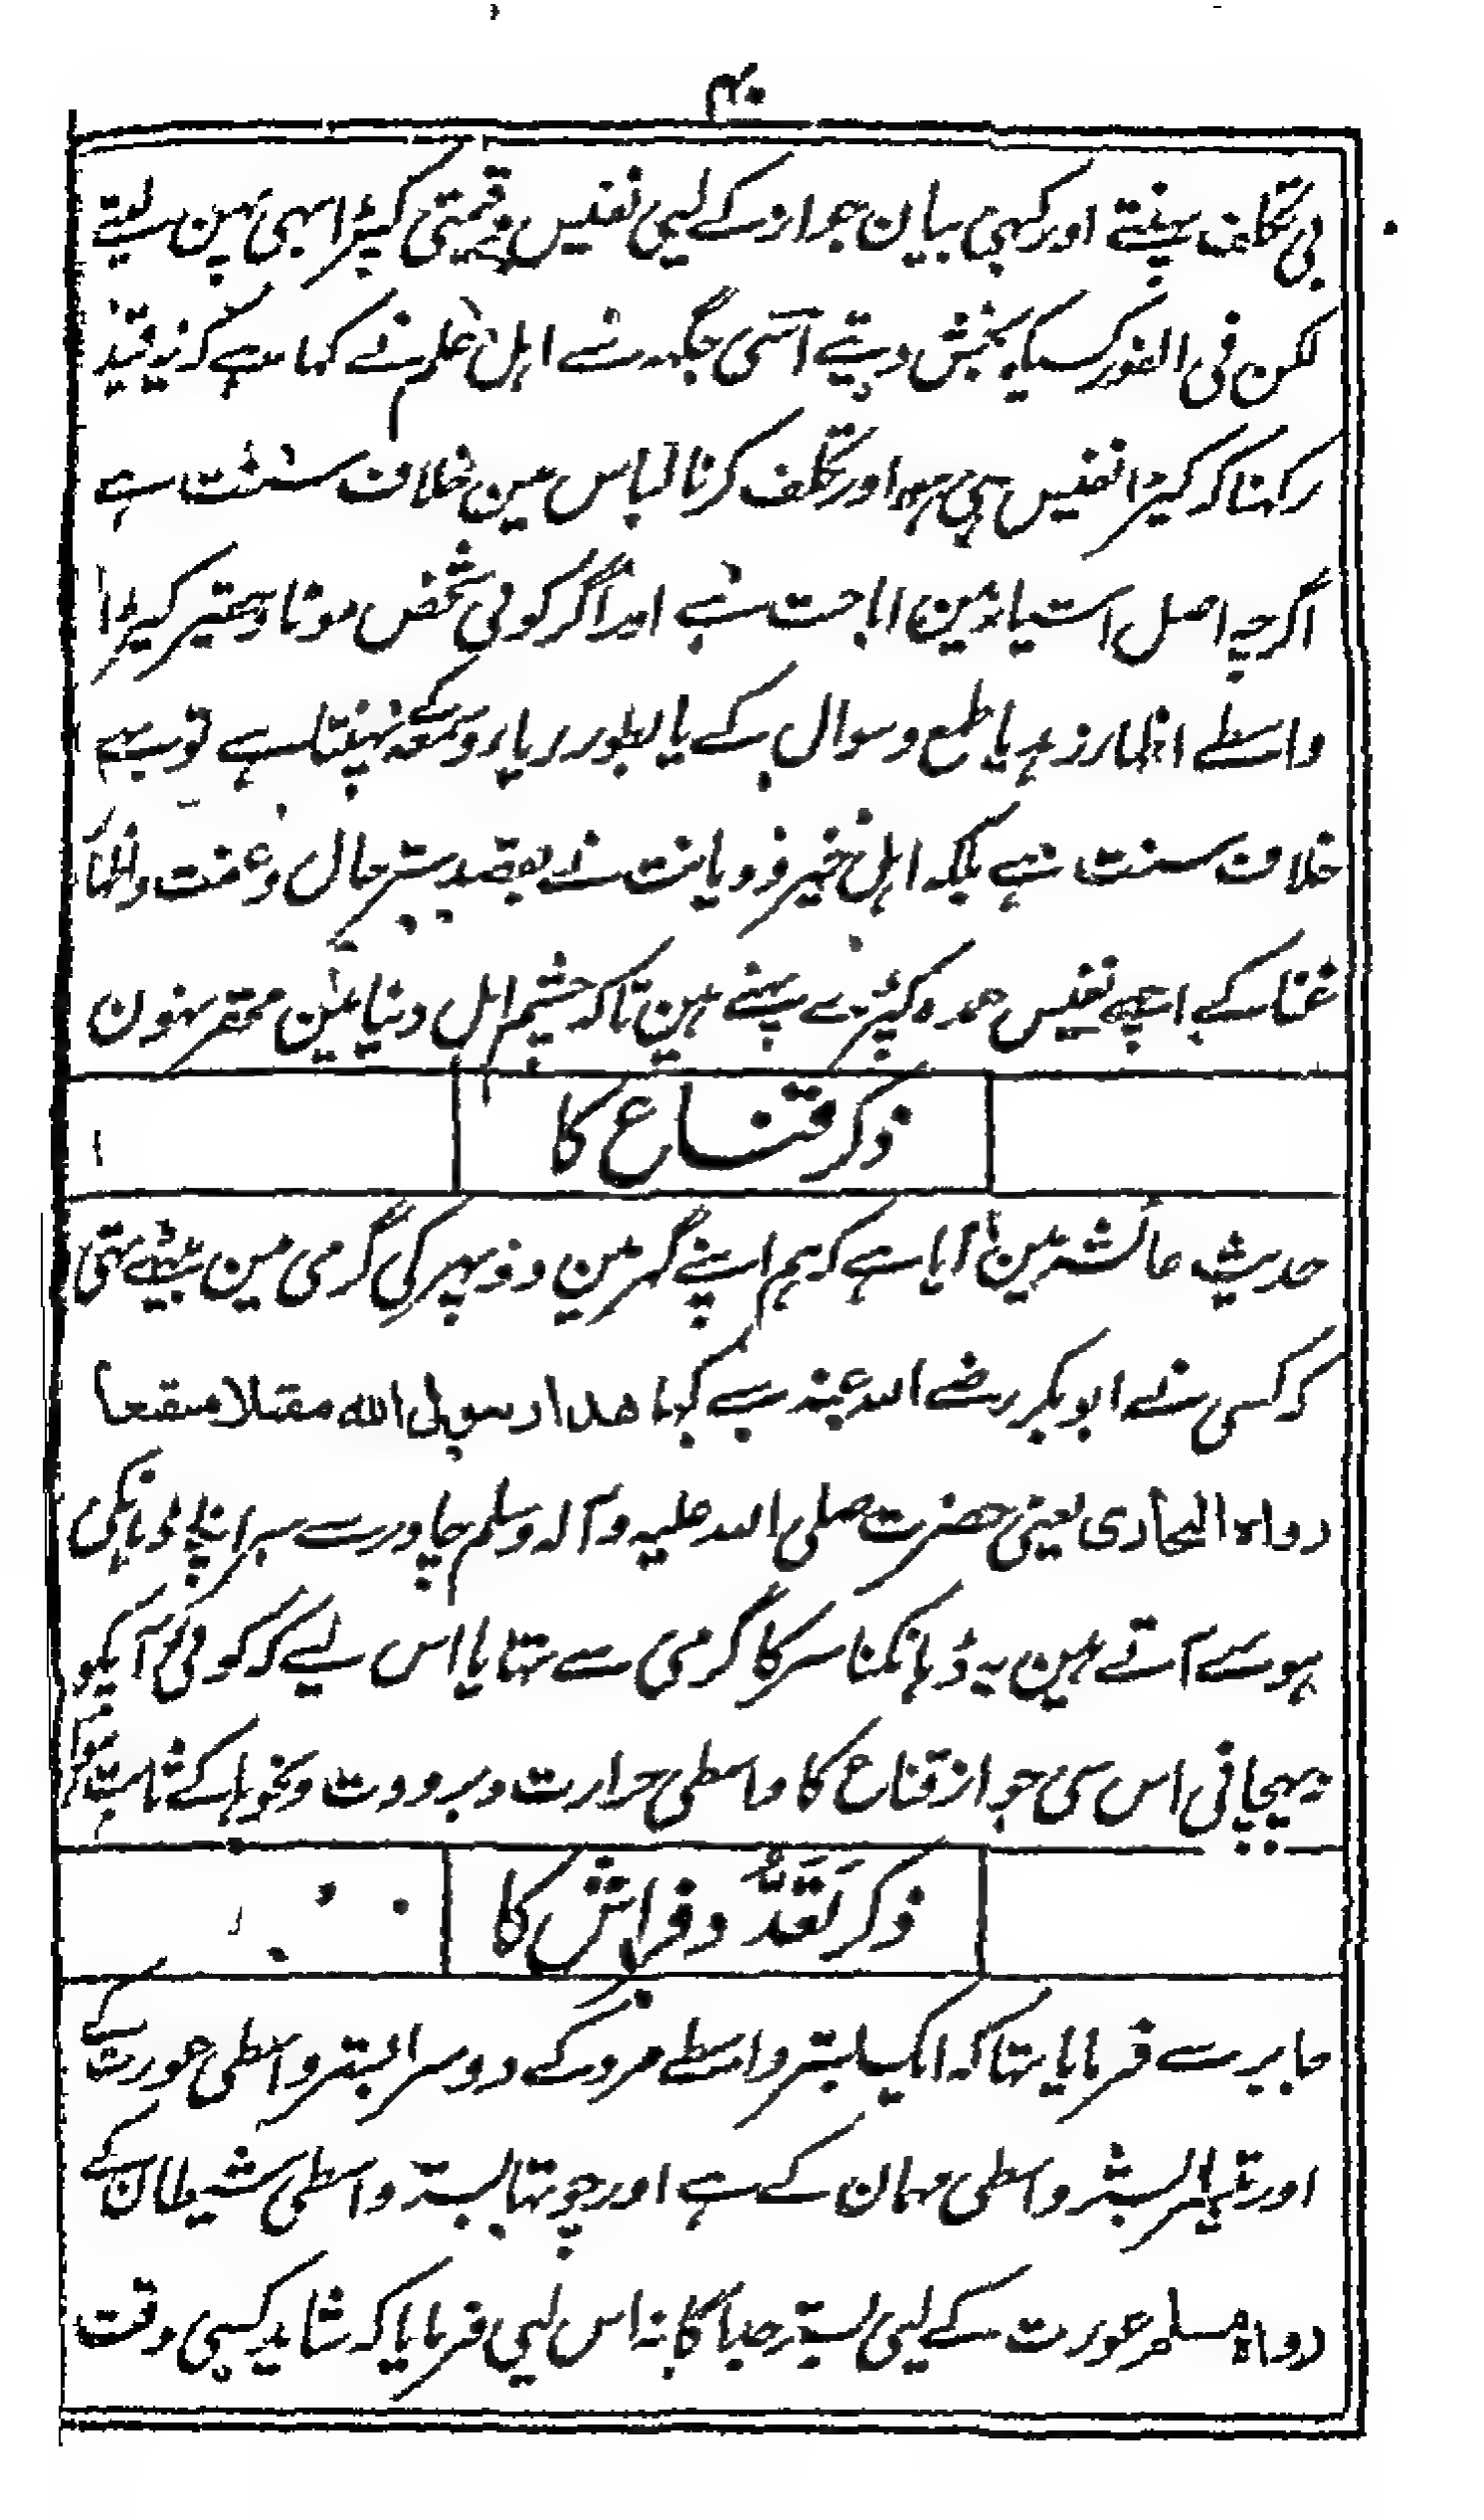 ۴۰
بی تکلف پہنتے اور کبھی بیان جواز کے لیی نفیس و قیمتی کپڑا بھی پہن لیتے
لکن فی الفور کسیکو بخش دیتے اسی جگہہ سے اہل علم نے کہا ہے کہ یہ قید
رکہنا کہ کپڑا نفیس ہی ہو اور تکلف کرنا لباس مین خلاف سنت ہے
اگرچہ اصل اشیاء مین اباحت ہے اور اگر کوئی شخص موٹا و حقیر کپڑا
واسطے اظہار زہد یا طمع و سوال کے یا بطور ریاء و سمعہ کے پہنتا ہے تو یہ بھی
خلاف سنت ہے بلکہ اہل خیر و دیانت نے بقصد ستر حال و عفت و اظہار
غنا کے اچھے نفیس عمدہ کپڑے پہنے ہین تاکہ چشم اہل دنیا مین محقر نہون
ذکر قناع کا
حدیث عائشہ مین آیا ہے کہ ہم اپنے گہر مین دوپہر کی گرمی مین بیٹھے تہی
کہ کسی نے ابو بکر رضے اللہ عنہ سے کہا هذا رسول الله مقبلا متقنعا
رواه البخاری یعنی حضرت صلی اللہ علیہ و آلہ وسلم چادر سے سر اپنا ڈہانکی
ہوے آتے ہین یہ ڈہانکنا سر کا گرمی سے تہا یا اس لیے کہ کوئی آپکو
نہ پہچانی اس سی جواز قناع کا واسطی حرارت و برودت و نحوہا کے ثابت ہوا
ذکر تَقَدُّ و فراش کا
جابر سے فرمایا تہا کہ ایک بستر واسطے مرد کے دوسرا بستر واسطی عورت کے
اور تیسرا بستر واسطی مہمان کے ہے اور چوتہا بستر واسطی شیطان کے
رواه مسلم عورت کے لیی بستر جداگانہ اس لیی فرمایا کہ شاید کسی وقت